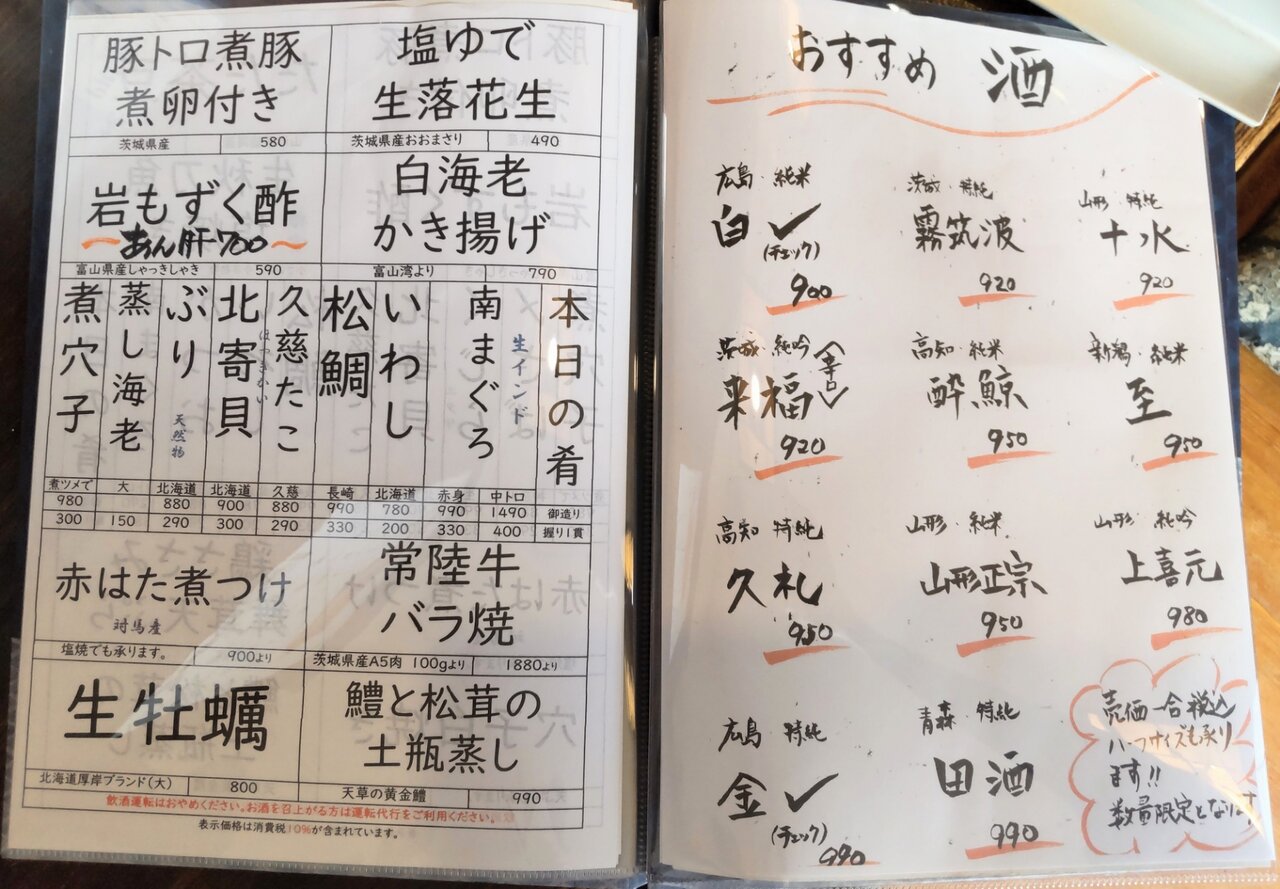 豚トロ煮豚
煮卵付き
茨城県産 580
塩ゆで
生落花生
茨城県産おおまさり 490
岩もずく酢
〜あん肝700〜
富山県産しゃっきしゃき 590
白海老
かき揚げ
富山湾より 790
本日の肴
御造り
握り1貫
南まぐろ
生インド
赤身 中トロ
990 1490
330 400
いわし
北海道
780
200
松鯛
長崎
990
330
久慈たこ
久慈
880
290
北寄貝
ほっきがい
北海道
900
300
ぶり
天然物
北海道
880
290
蒸し海老
大
150
煮穴子
煮ツメで
980
300
赤はた煮つけ
対馬産
塩焼でも承ります。 900より
常陸牛
バラ焼
茨城県産A5肉 100gより 1880より
生牡蠣
北海道厚岸ブランド(大) 800
鱧と松茸の
土瓶蒸し
天草の黄金鱧 990
飲酒運転はおやめください。お酒を召上がる方は運転代行をご利用ください。
表示価格は消費税10%が含まれています。
おすすめ 酒
広島・純米
白✓
(チェック)
900
茨城・特純
霧筑波
920
山形・特純
十水
920
茨城・純吟
来福
〈辛口〉
920
高知・純米
酔鯨
950
新潟・純米
至
950
高知 特純
久礼
950
山形・純米
山形正宗
950
山形・純吟
上喜元
980
広島 特純
金✓
(チェック)
990
青森 特純
田酒
990
売価一合税込
ハーフサイズも承り
ます!!
数量限定となります